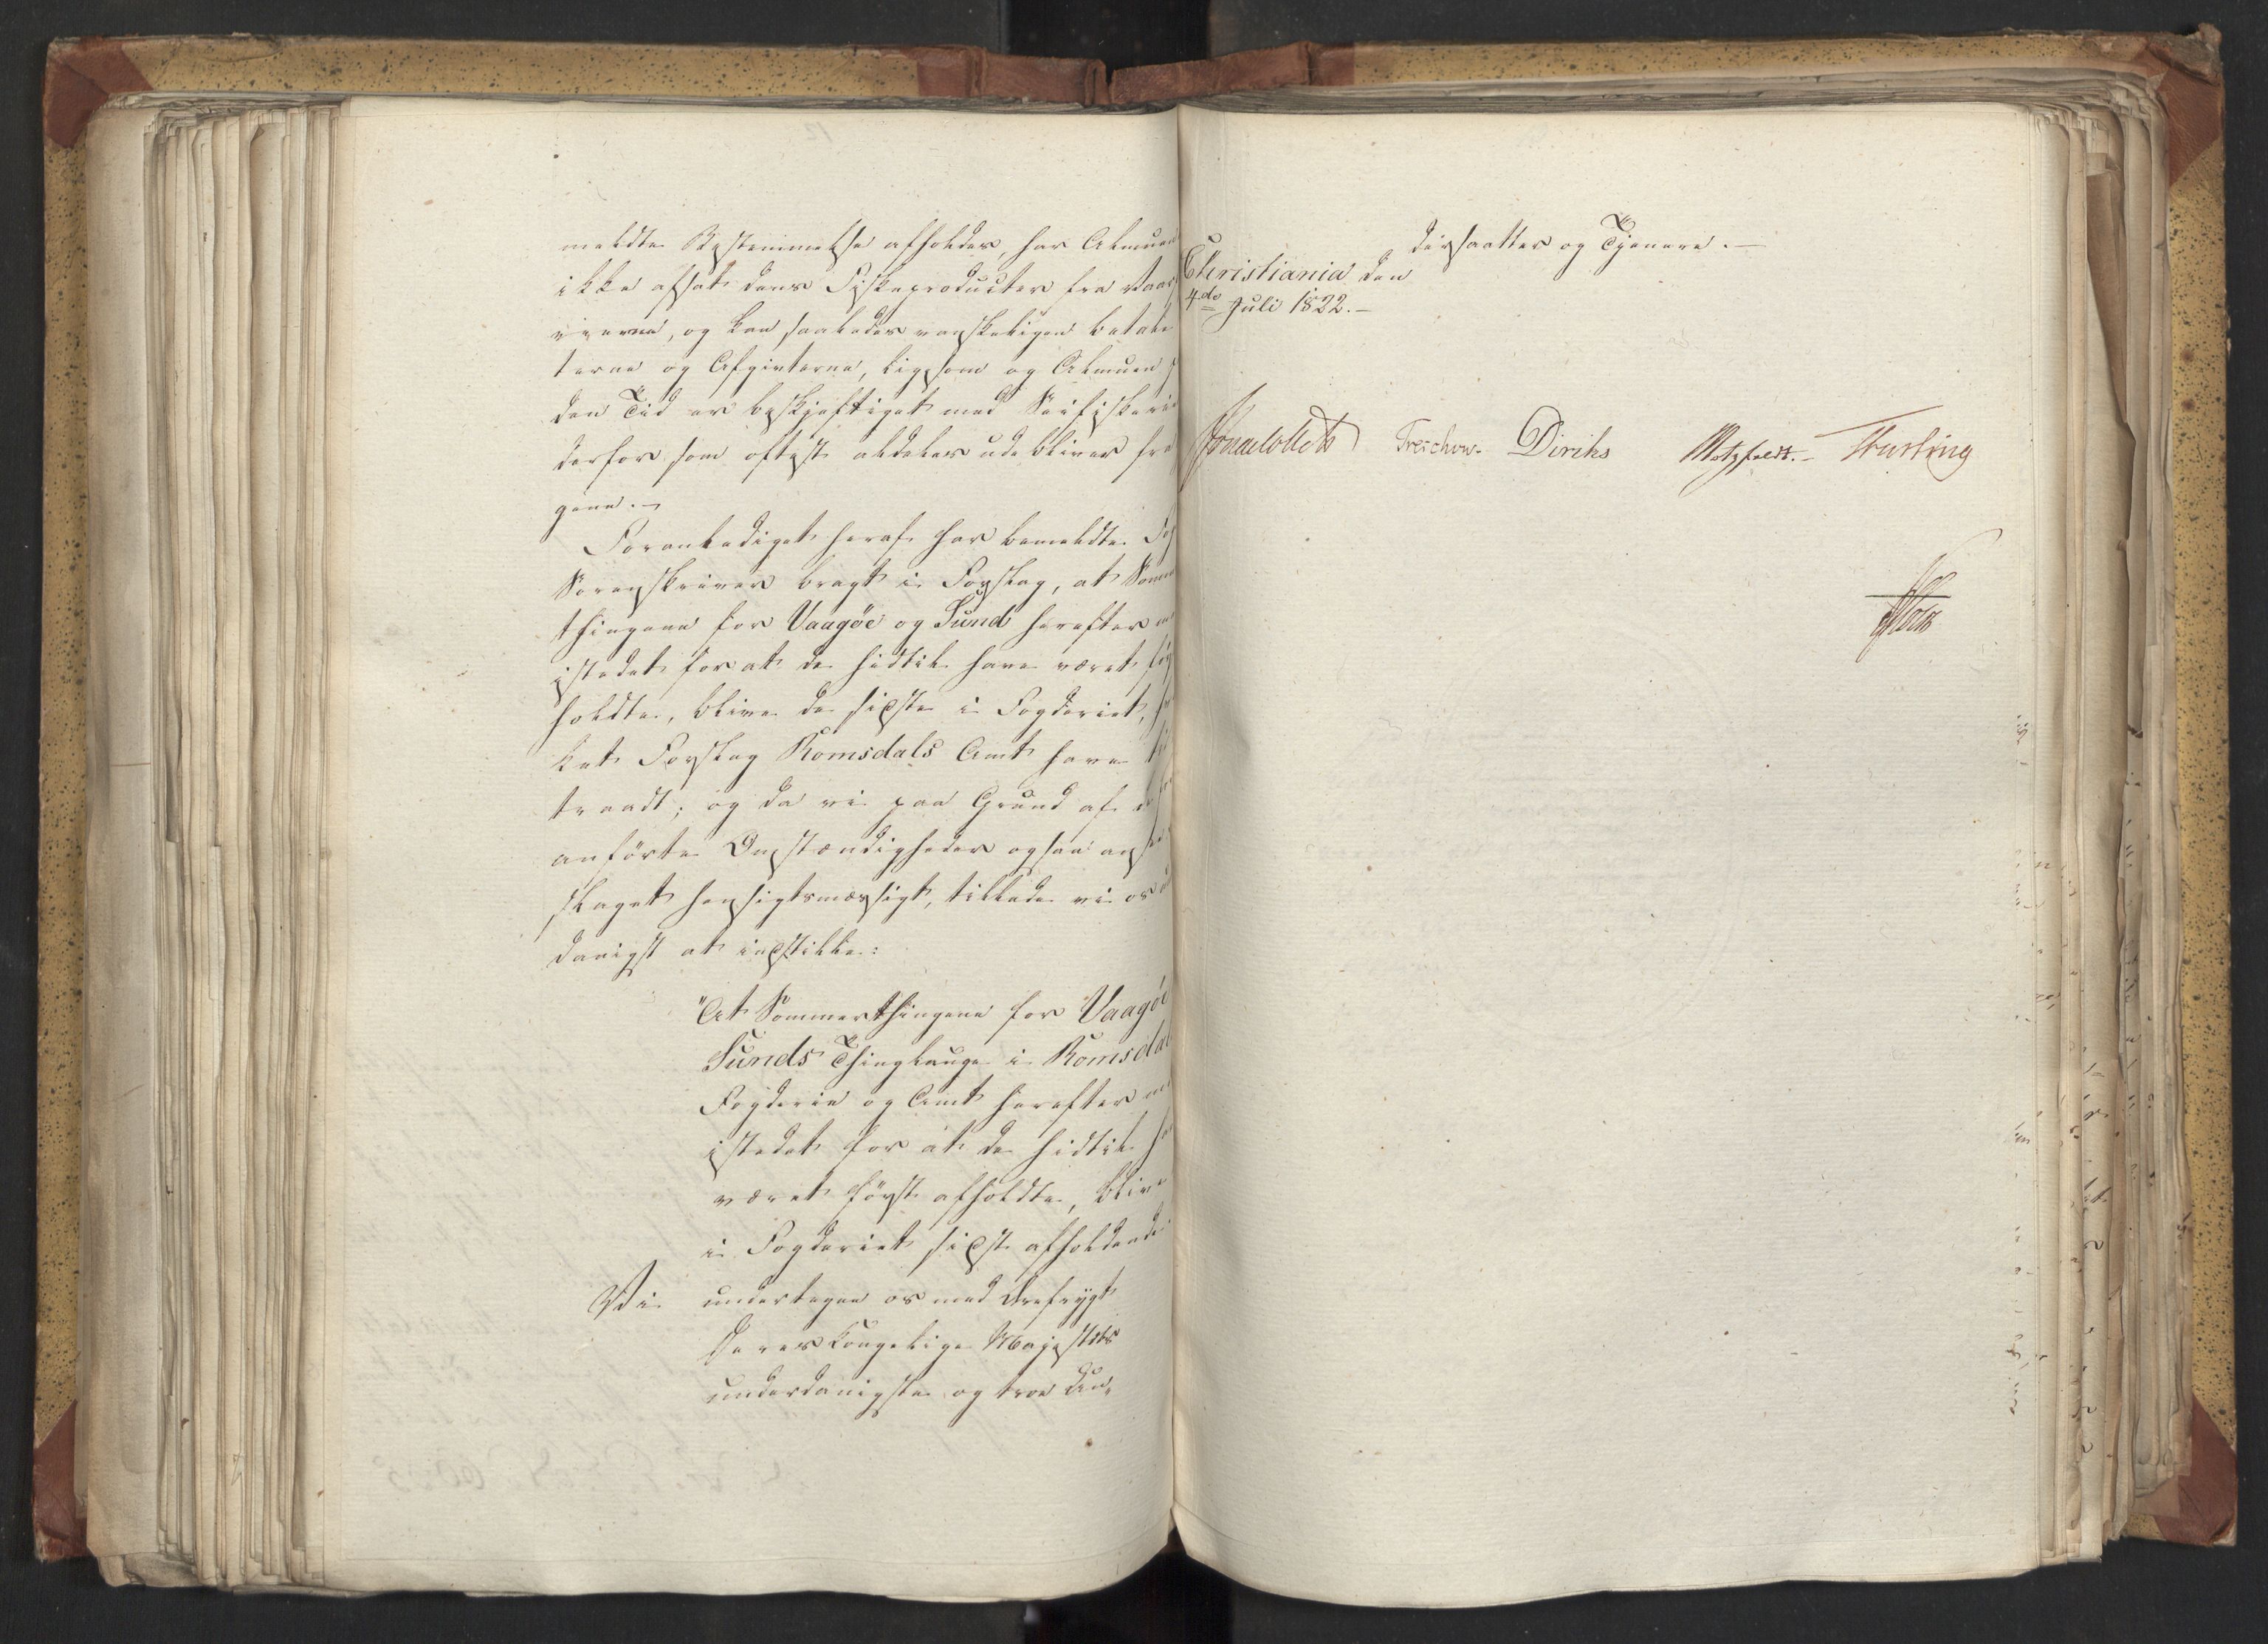 meldte Bestemmelse afholdes, har Almuen
ikke afsat deres Fiskeproducter fra Vaar
og kan saaledes vanskeligen betale
terne og Afgivterne, ligesom og Almuen
den Tid er beskjæftiget med Seifiskerie
derfor som oftest aldeles udebliver fra
gene.-
Foranlediget heraf har bemeldte
Sorenskriver bragt i Forslag, at Somme
thingene for Vaagöe og Sund herefter
istedet for at de hidtil have været
holdte, blive de sidste i Fogderiet,
ket Forslag Romsdals Amt have
traadt; og da vi paa Grund af
anförte Omstændigheder ogsaa anse
slaget hensigtsmæssigt, tillade vi os
danigst at indstille:
"At Sommerthingene for Vaagöe
Sunds Thinglauge i Romsdal
Fogderie og Amt herefter
istedet for at de hidtil
været först afholdte, blive
i Fogderiet sidst afholdende
Vi undertegne os med Ærefrygt
Deres Kongelige Majestæts
underdanigste og troe Un-
dersaatter og Tjenere.-
Christiania den
4de Juli 1822.-
Treschow. Diriks Motzfeldt.-